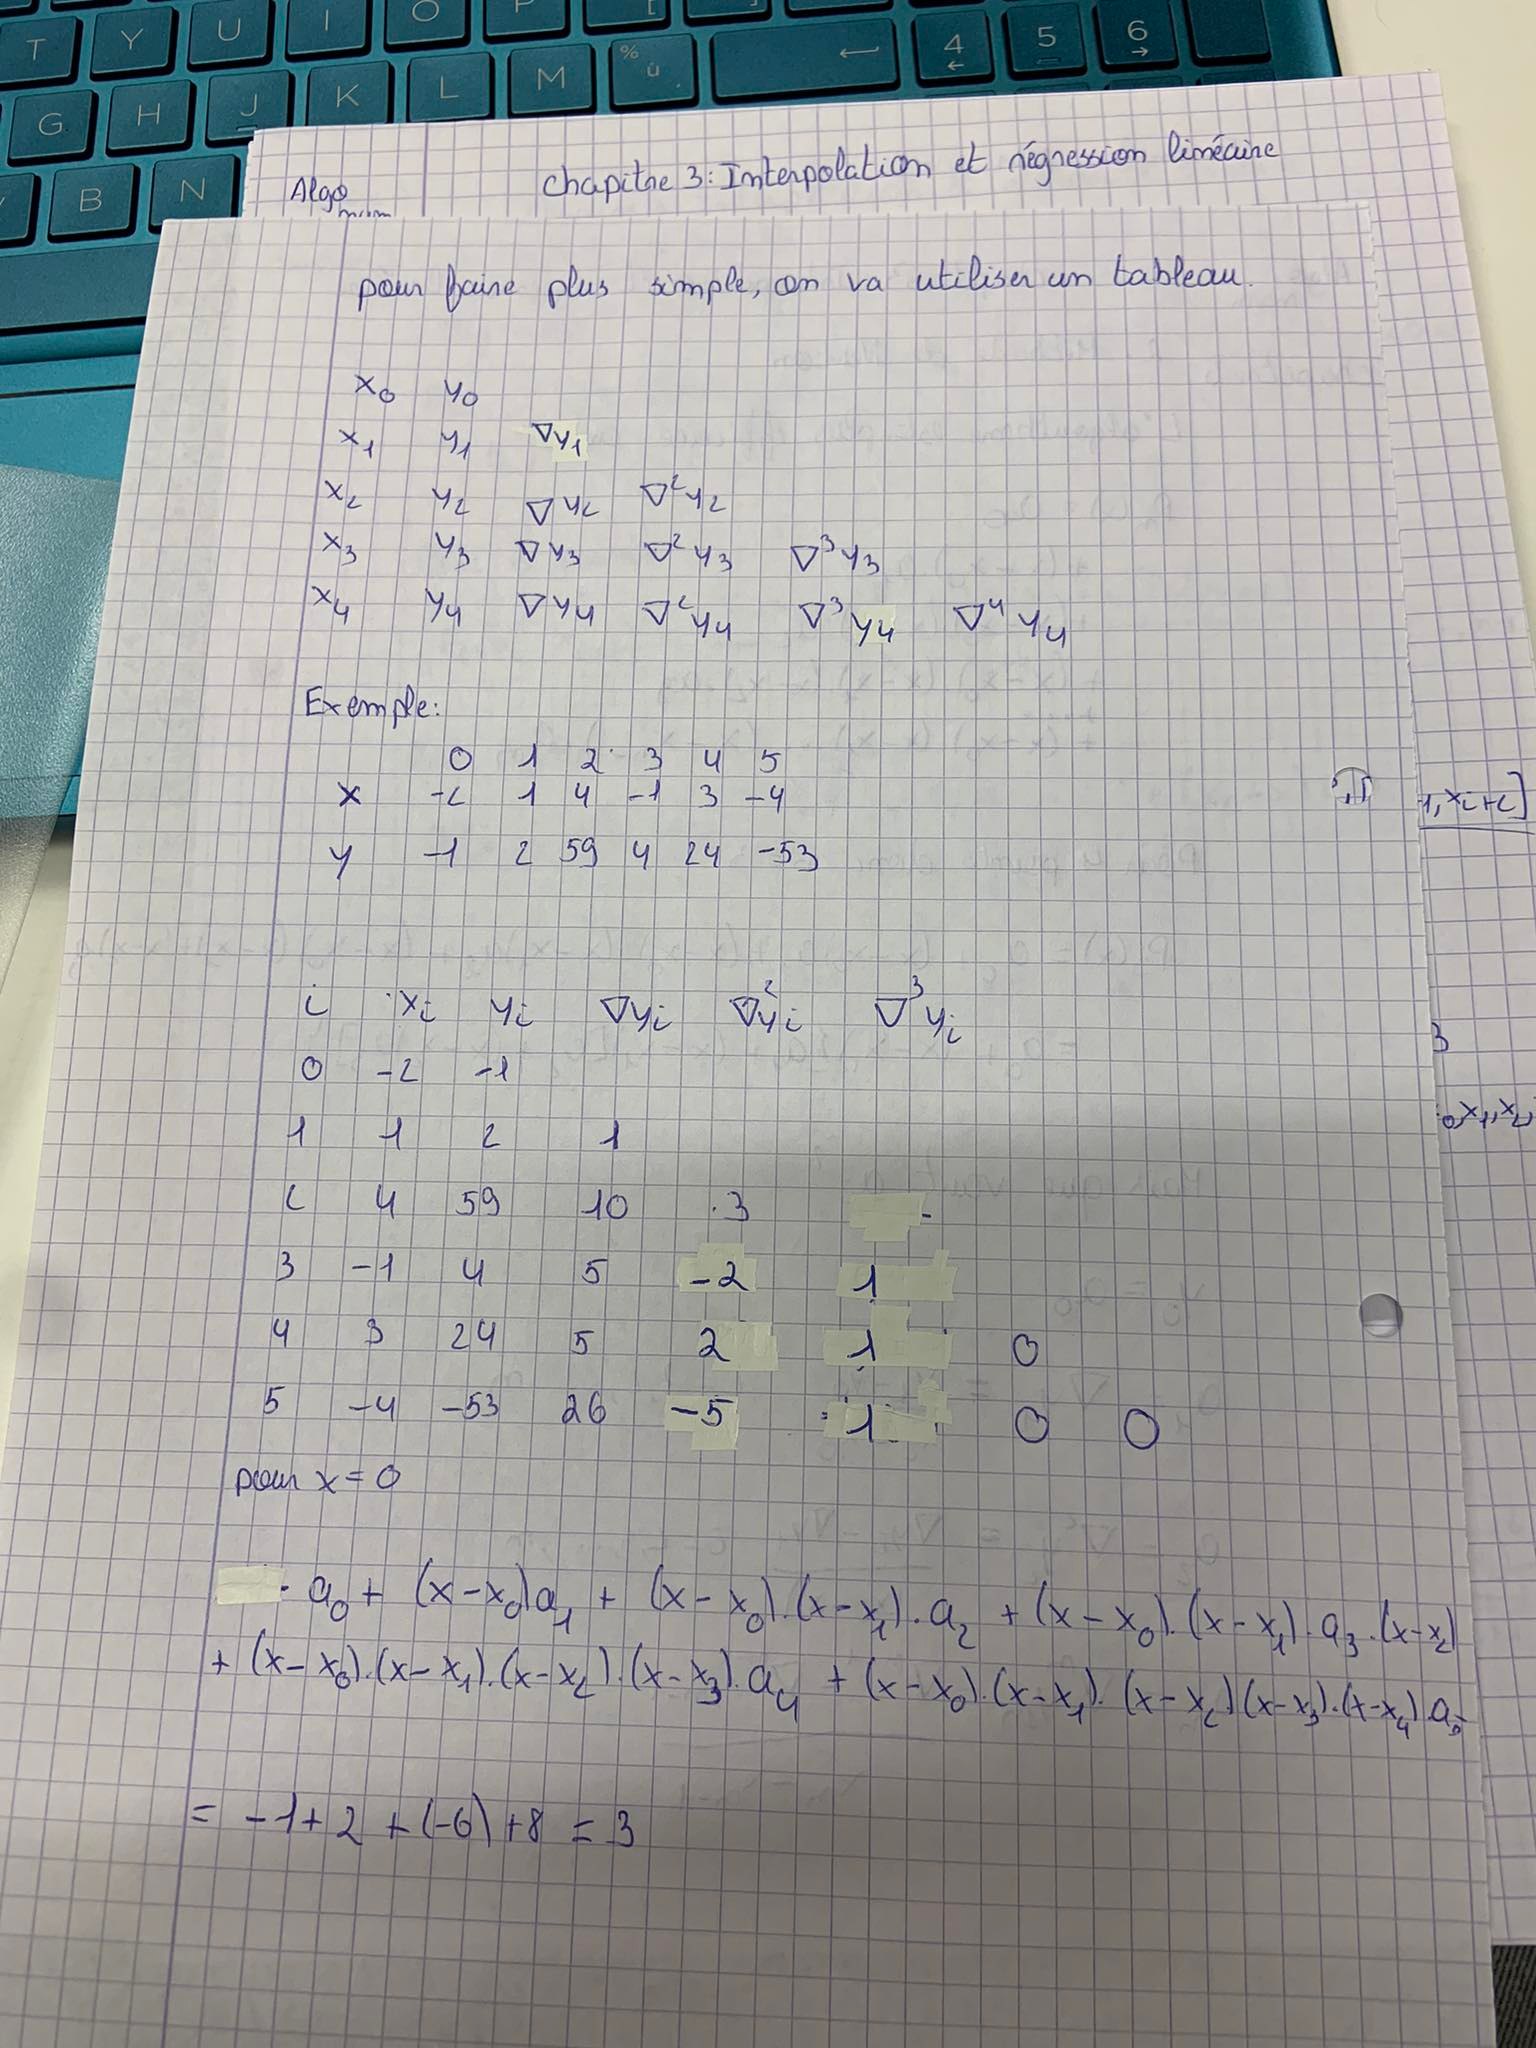 T Y U I O P [
G H J K L M % ù ← 4 ← 5 6 →
B N
Algo
num
chapitre 3: Interpolation et régression linéaire
pour faire plus simple, on va utiliser un tableau.
x₀ y₀
x₁ y₁ ∇y₁
x₂ y₂ ∇y₂ ∇²y₂
x₃ y₃ ∇y₃ ∇²y₃ ∇³y₃
x₄ y₄ ∇y₄ ∇²y₄ ∇³y₄ ∇⁴y₄
Exemple:
0 1 2 3 4 5
x -2 1 4 -1 3 -4
y -1 2 59 4 24 -53
i xᵢ yᵢ ∇yᵢ ∇²yᵢ ∇³yᵢ
0 -2 -1
1 1 2 1
2 4 59 10 3
3 -1 4 5 -2 1
4 3 24 5 2 1 0
5 -4 -53 26 -5 1 0 0
pour x = 0
a₀ + (x-x₀)a₁ + (x-x₀).(x-x₁).a₂ + (x-x₀).(x-x₁).a₃.(x-x₂)
+ (x-x₀).(x-x₁).(x-x₂).(x-x₃).a₄ + (x-x₀).(x-x₁).(x-x₂)(x-x₃).(x-x₄).a₅
= -1+2+(-6)+8 = 3
1,xᵢ₊₂]
3
₀,x₁,x₂,